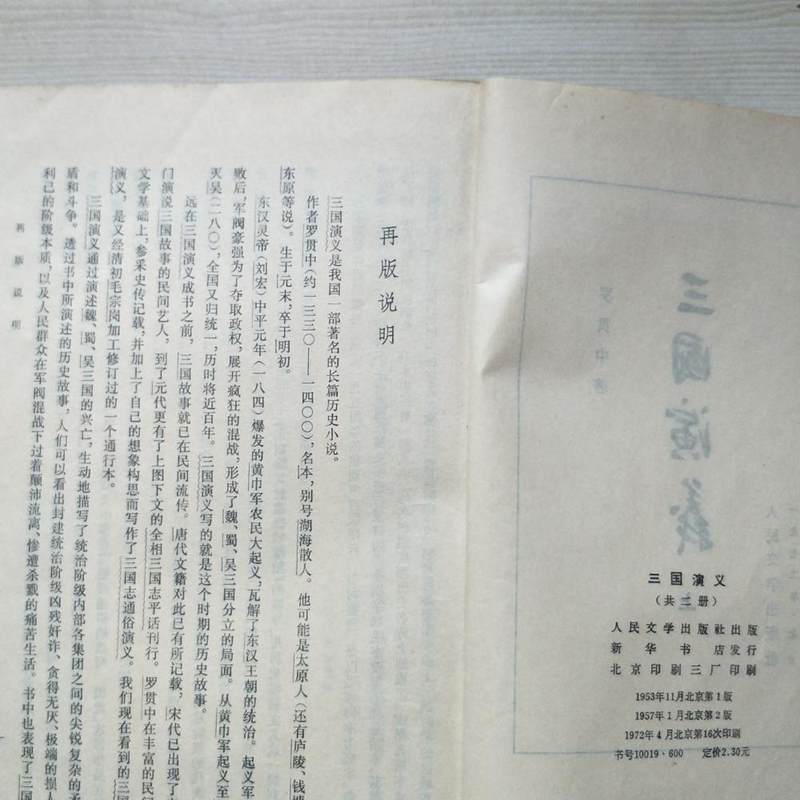 再版说明
三国演义是我国一部著名的长篇历史小说。
作者罗贯中(约一三三〇——一四〇〇),名本,别号湖海散人。他可能是太原人(还有庐陵、钱塘
东原等说)。生于元末,卒于明初。
东汉灵帝(刘宏)中平元年(一八四)爆发的黄巾军农民大起义,瓦解了东汉王朝的统治。起义军
败后,军阀豪强为了夺取政权,展开疯狂的混战,形成了魏、蜀、吴三国分立的局面。从黄巾军起义至
灭吴(二八〇),全国又归统一,历时将近百年。三国演义写的就是这个时期的历史故事。
远在三国演义成书之前,三国故事就已在民间流传。唐代文籍对此已有所记载,宋代已出现了
门演说三国故事的民间艺人,到了元代更有了上图下文的全相三国志平话刊行。罗贯中在丰富的民间
文学基础上,参采史传记载,并加上了自己的想象构思而写作了三国志通俗演义。我们现在看到的三国
演义,是又经清初毛宗岗加工修订过的一个通行本。
三国演义通过演述魏、蜀、吴三国的兴亡,生动地描写了统治阶级内部各集团之间的尖锐复杂的矛
盾和斗争。透过书中所演述的历史故事,人们可以看出封建统治阶级凶残奸诈、贪得无厌、极端的损人
利己的阶级本质,以及人民群众在军阀混战下过着颠沛流离、惨遭杀戮的痛苦生活。书中也表现了三国
再版说明
三國演義
罗贯中著
三国演义
(共二册)
人民文学出版社出版
新华书店发行
北京印刷三厂印刷
1953年11月北京第1版
1957年1月北京第2版
1972年4月北京第16次印刷
书号10019·600 定价2.30元